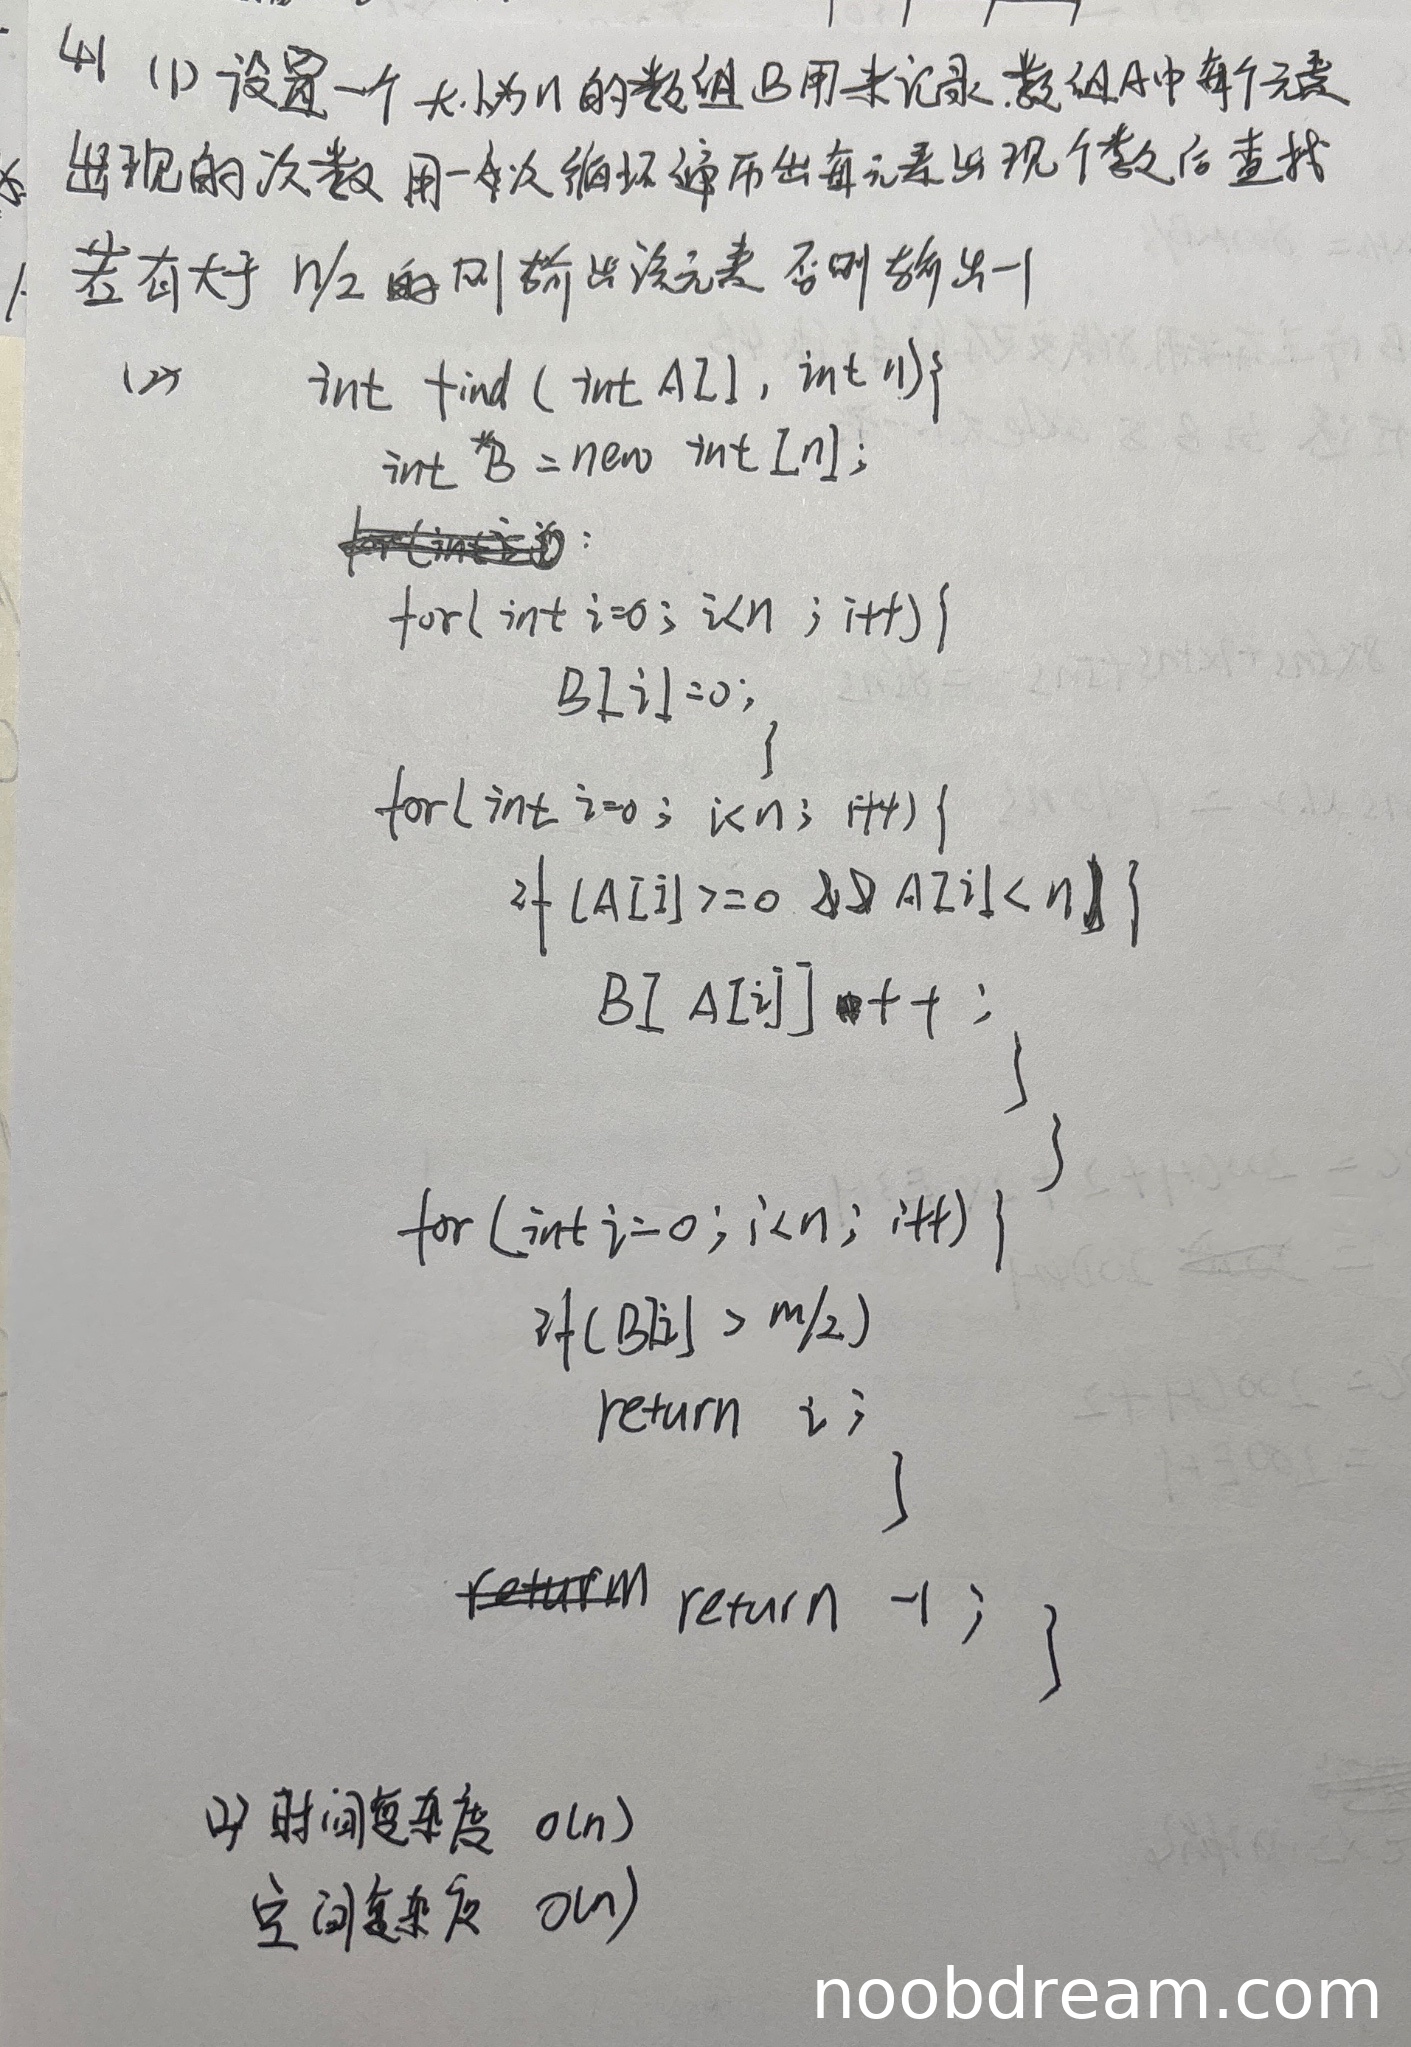 41 (1) 设置一个大小为n的数组B用来记录数组A中每个元素
出现的次数 用一次循环遍历出每元素出现个数后查找
若有大于 n/2 的则输出该元素 否则输出-1
(2) int find ( int A[], int n){
int *B = new int [n];
for(int i=0; i<n ; i++) {
B[i]=0;
}
for(int i=0; i<n; i++){
if (A[i]>=0 && A[i]<n) {
B[A[i]]++;
}
}
for(int i=0; i<n; i++){
if(B[i] > m/2)
return i;
}
return -1; }
(3) 时间复杂度 O(n)
空间复杂度 O(n)
noobdream.com